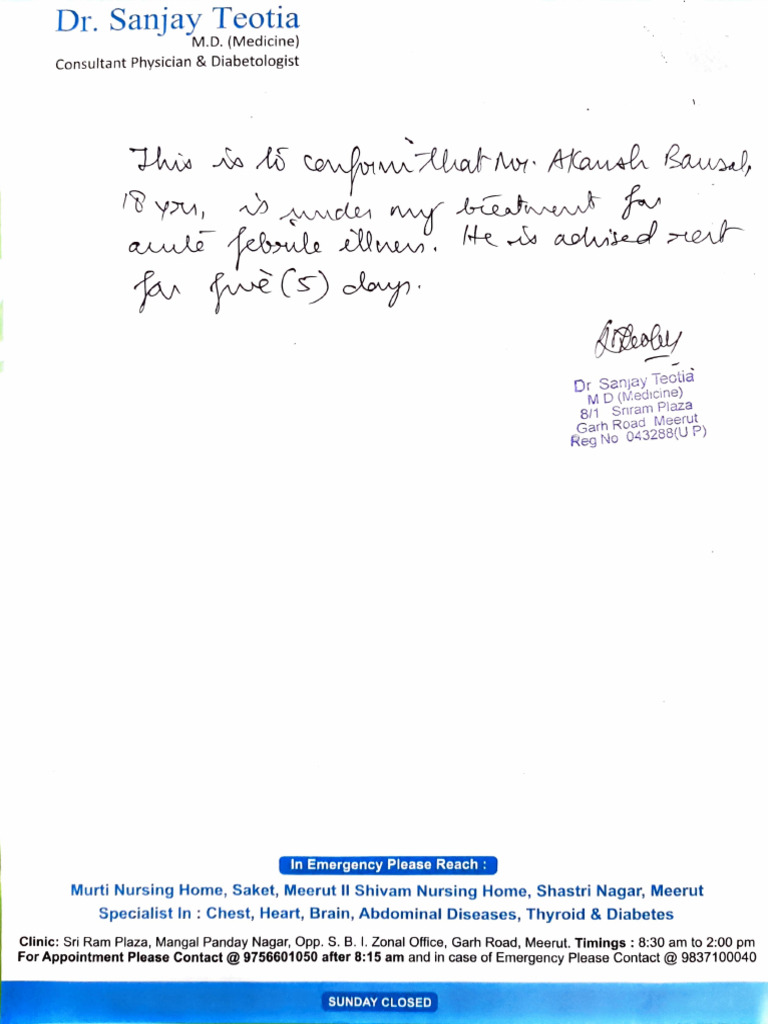 Dr. Sanjay Teotia
M.D. (Medicine)
Consultant Physician & Diabetologist
This is to confirm that Mr. Akansh Bansal,
18 yrs, is under my treatment for
acute febrile illness. He is advised rest
for five (5) days.
Dr Sanjay Teotia
M D (Medicine)
8/1 Sriram Plaza
Garh Road Meerut
Reg No 043288(U P)
In Emergency Please Reach :
Murti Nursing Home, Saket, Meerut II Shivam Nursing Home, Shastri Nagar, Meerut
Specialist In : Chest, Heart, Brain, Abdominal Diseases, Thyroid & Diabetes
Clinic: Sri Ram Plaza, Mangal Panday Nagar, Opp. S. B. I. Zonal Office, Garh Road, Meerut. Timings : 8:30 am to 2:00 pm
For Appointment Please Contact @ 9756601050 after 8:15 am and in case of Emergency Please Contact @ 9837100040
SUNDAY CLOSED